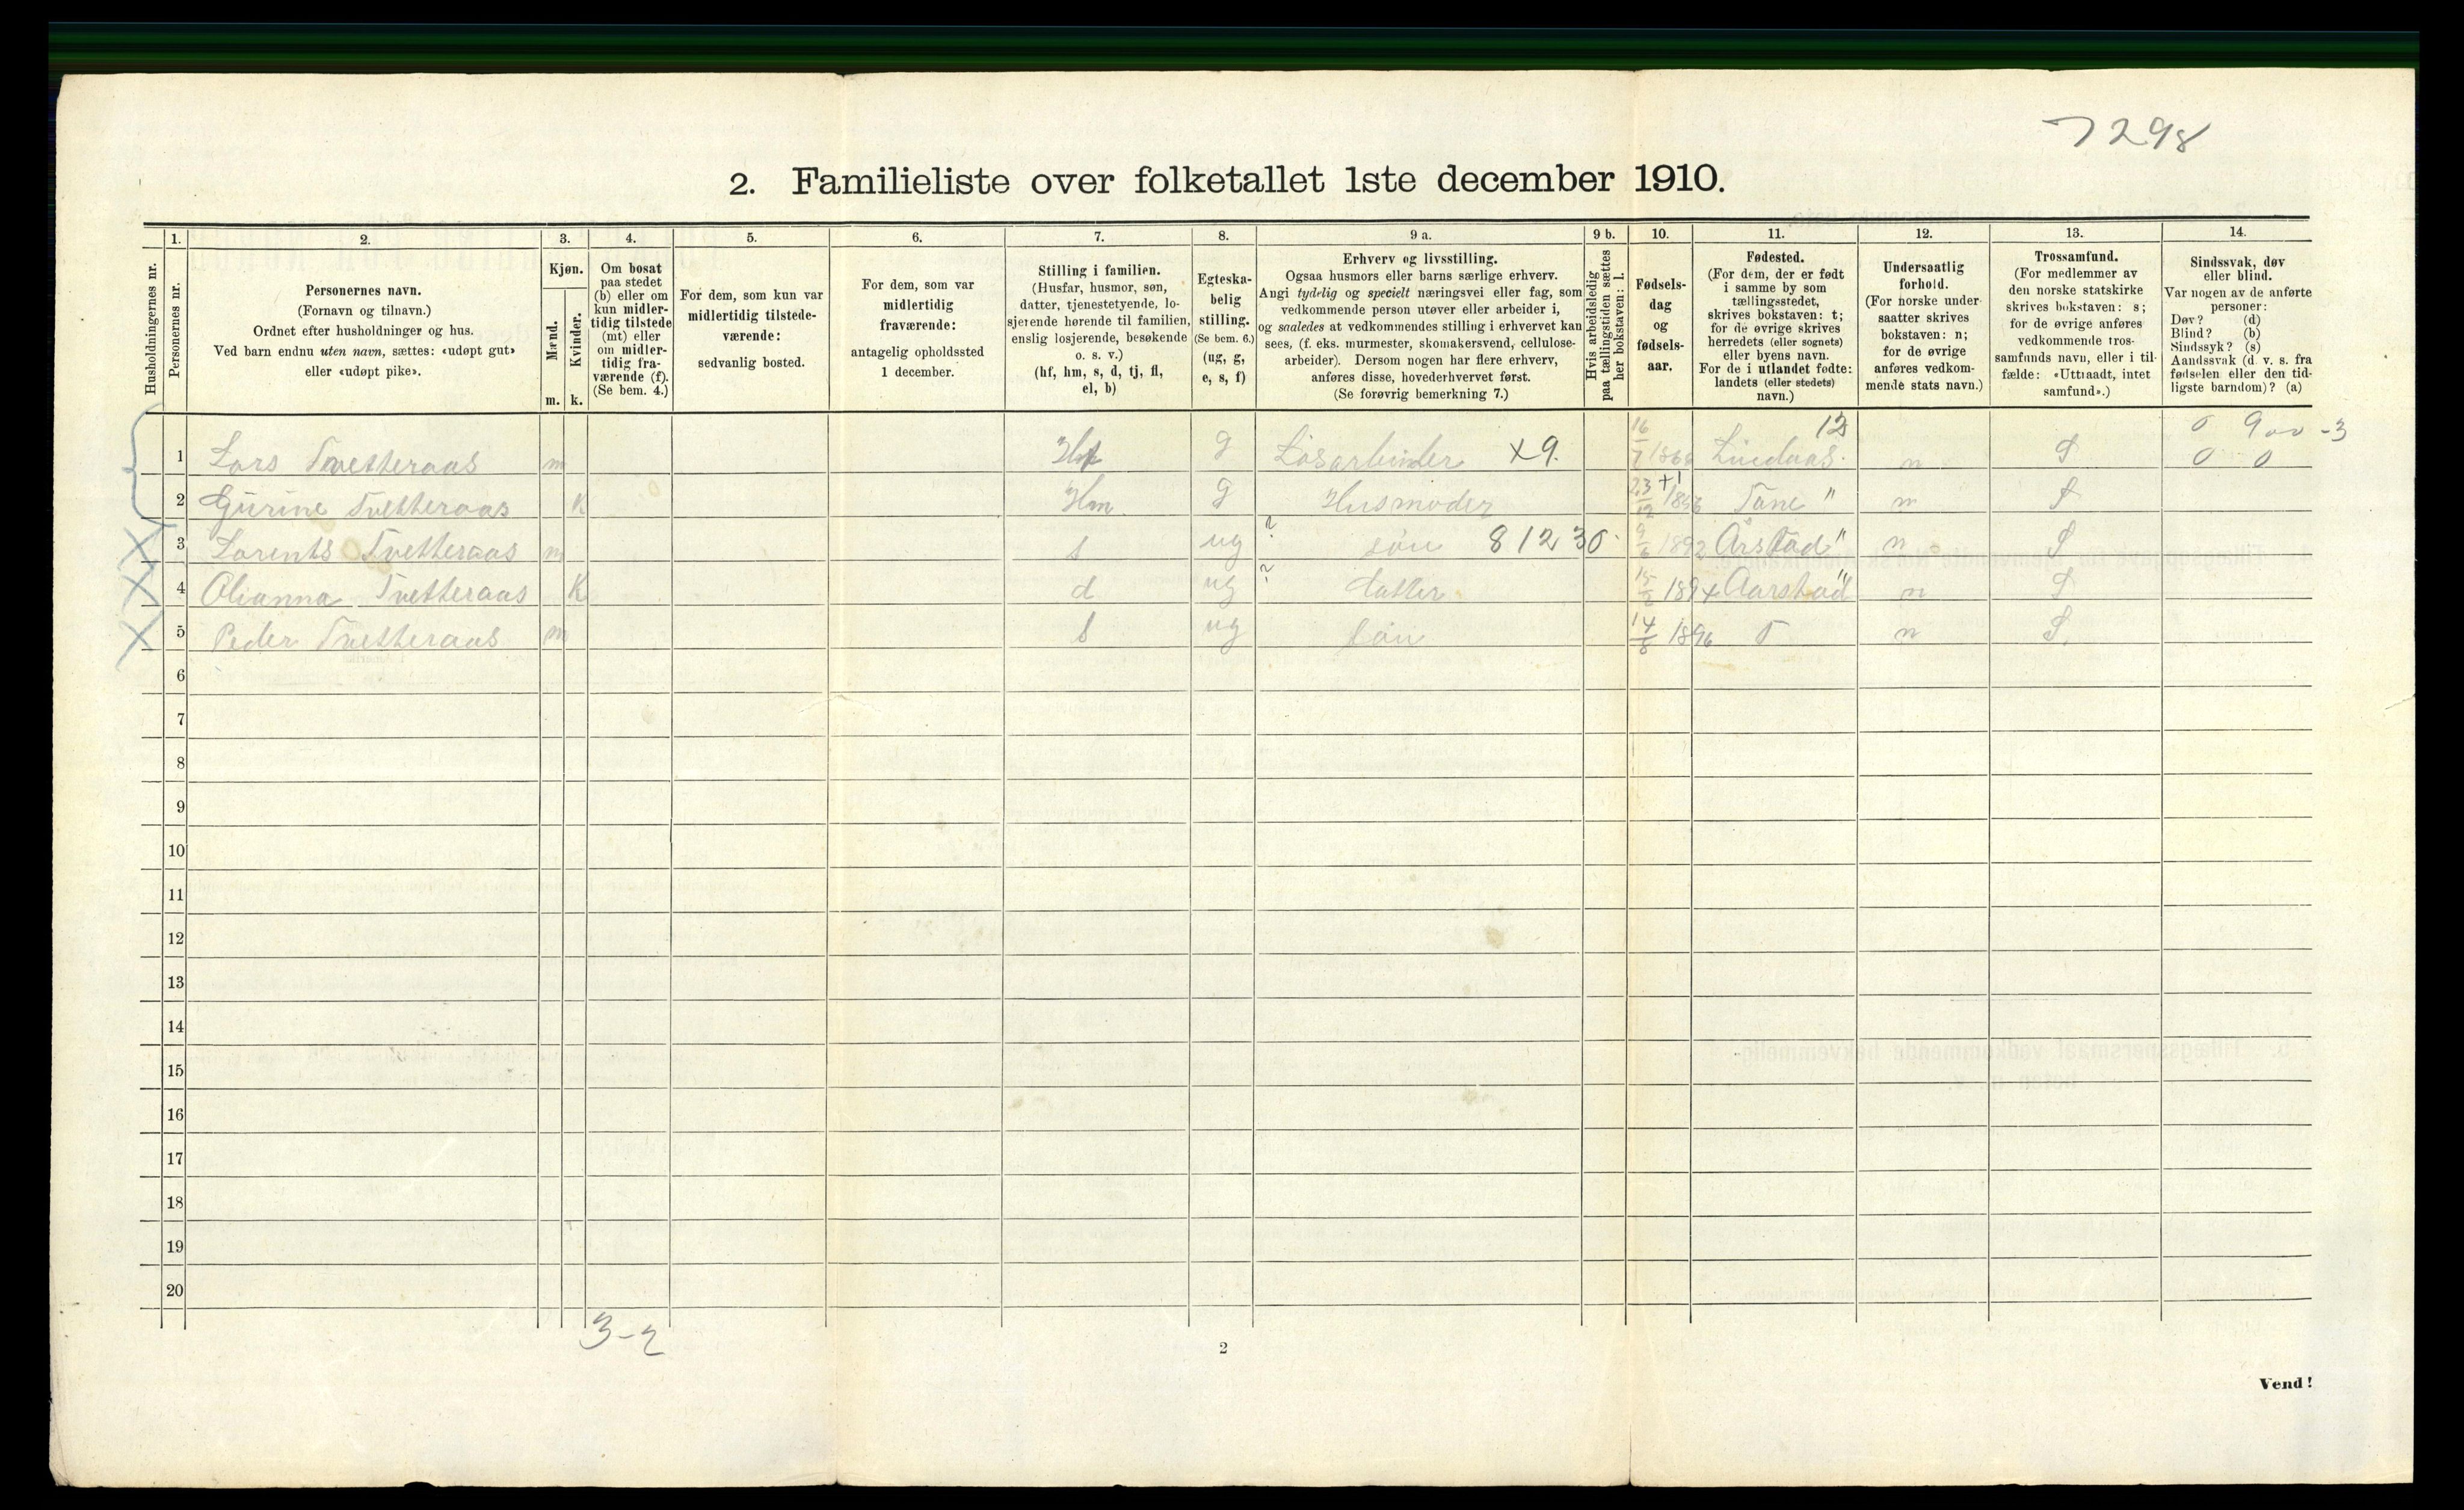 7298
2. Familieliste over folketallet 1ste december 1910.
Husholdningernes nr.
1.
Personernes nr.
2.
Personernes navn.
(Fornavn og tilnavn.)
Ordnet efter husholdninger og hus.
Ved barn endnu uten navn, sættes: «udøpt gut»
eller «udøpt pike».
3.
Kjøn.
Mænd.
Kvinder.
m. k.
4.
Om bosat
paa stedet
(b) eller om
kun midler-
tidig tilstede
(mt) eller
om midler-
tidig fra-
værende (f).
(Se bem. 4.)
5.
For dem, som kun var
midlertidig tilstede-
værende:
sedvanlig bosted.
6.
For dem, som var
midlertidig
fraværende:
antagelig opholdssted
1 december.
7.
Stilling i familien.
(Husfar, husmor, søn,
datter, tjenestetyende, lo-
sjerende hørende til familien,
enslig losjerende, besøkende
o. s. v.)
(hf, hm, s, d, tj, fl,
el, b)
8.
Egteska-
belig
stilling.
(Se bem. 6.)
(ug, g,
e, s, f)
9 a.
Erhverv og livsstilling.
Ogsaa husmors eller barns særlige erhverv.
Angi tydelig og specielt næringsvei eller fag, som
vedkommende person utøver eller arbeider i,
og saaledes at vedkommendes stilling i erhvervet kan
sees, (f. eks. murmester, skomakersvend, cellulose-
arbeider). Dersom nogen har flere erhverv,
anføres disse, hovederhvervet først.
(Se forøvrig bemerkning 7.)
9 b.
Hvis arbeidsledig
paa tællingstiden sættes
her bokstaven: l.
10.
Fødsels-
dag
og
fødsels-
aar.
11.
Fødested.
(For dem, der er født
i samme by som
tællingsstedet,
skrives bokstaven: t;
for de øvrige skrives
herredets (eller sognets)
eller byens navn.
For de i utlandet fødte:
landets (eller stedets)
navn.)
12.
Undersaatlig
forhold.
(For norske under-
saatter skrives
bokstaven: n;
for de øvrige
anføres vedkom-
mende stats navn.)
13.
Trossamfund.
(For medlemmer av
den norske statskirke
skrives bokstaven: s;
for de øvrige anføres
vedkommende tros-
samfunds navn, eller i til-
fælde: «Uttraadt, intet
samfund».)
14.
Sindssvak, døv
eller blind.
Var nogen av de anførte
personer:
Døv? (d)
Blind? (b)
Sindssyk? (s)
Aandssvak (d. v. s. fra
fødselen eller den tid-
ligste barndom)? (a)
1 Lars Tvetteraas m Hf g Løsarbeider X9. 16/7 Lindaas n S 0 0
2 Gurine Tvetteraas K Hm g Husmoder 23/12 Tane " n S
3 Lorents Tvetteraas m s ug søn 81230 1892 Årstad " n S
4 Olianna Tvetteraas K d ug datter 1894 Aarstad " n S
5 Peder Tvetteraas m s ug søn 14/8 1896 T n S.
6
7
8
9
10
11
12
13
14
15
16
17
18
19
20
3-2
2
Vend!